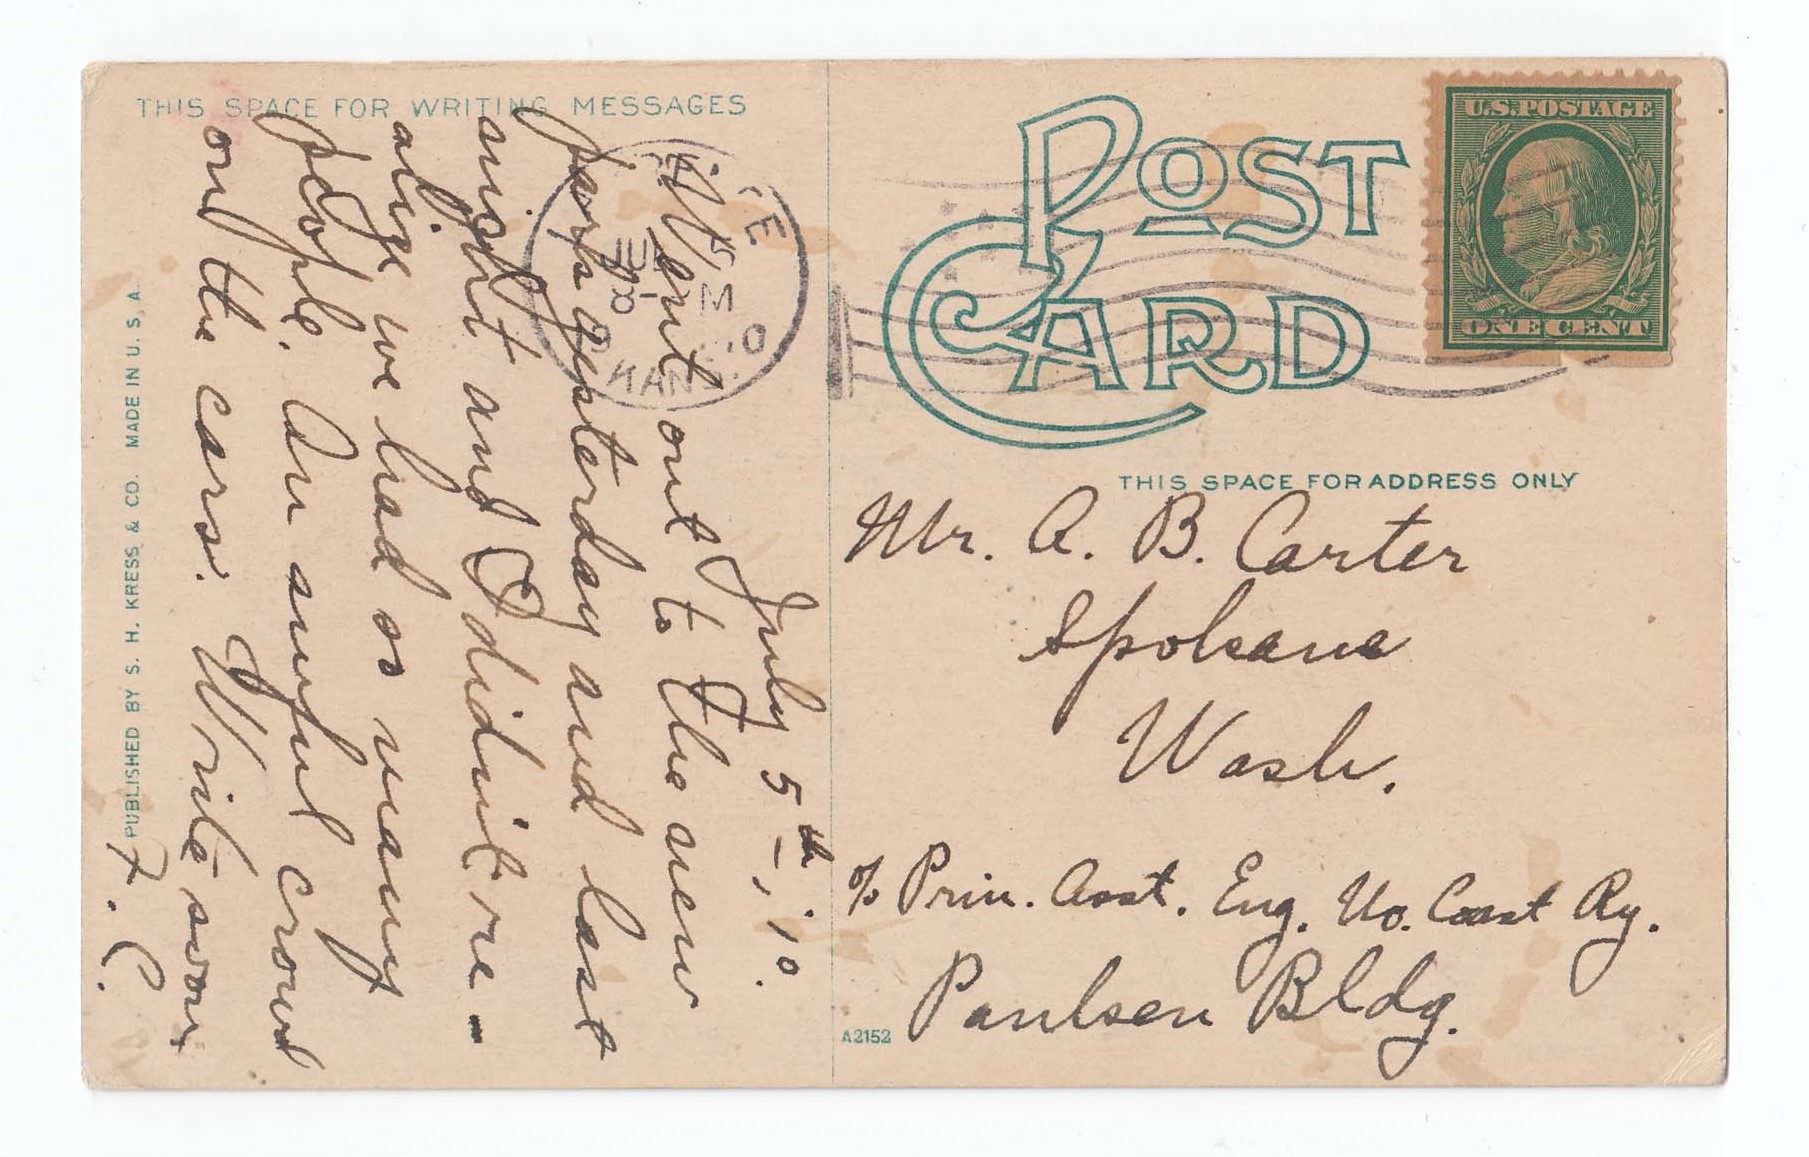 THIS SPACE FOR WRITING MESSAGES
July 5th, '10.
Went out to the new
park yesterday and last
night and I didn't re-
alize we had so many
people. An awful crowd
on the cars. Write soon
F. C.
PUBLISHED BY S. H. KRESS & CO. MADE IN U. S. A.
POST
CARD
U.S. POSTAGE
ONE CENT
THIS SPACE FOR ADDRESS ONLY
Mr. A. B. Carter
Spokane
Wash.
c/o Prin. Asst. Eng. No. Coast Ry.
Paulsen Bldg.
A2152